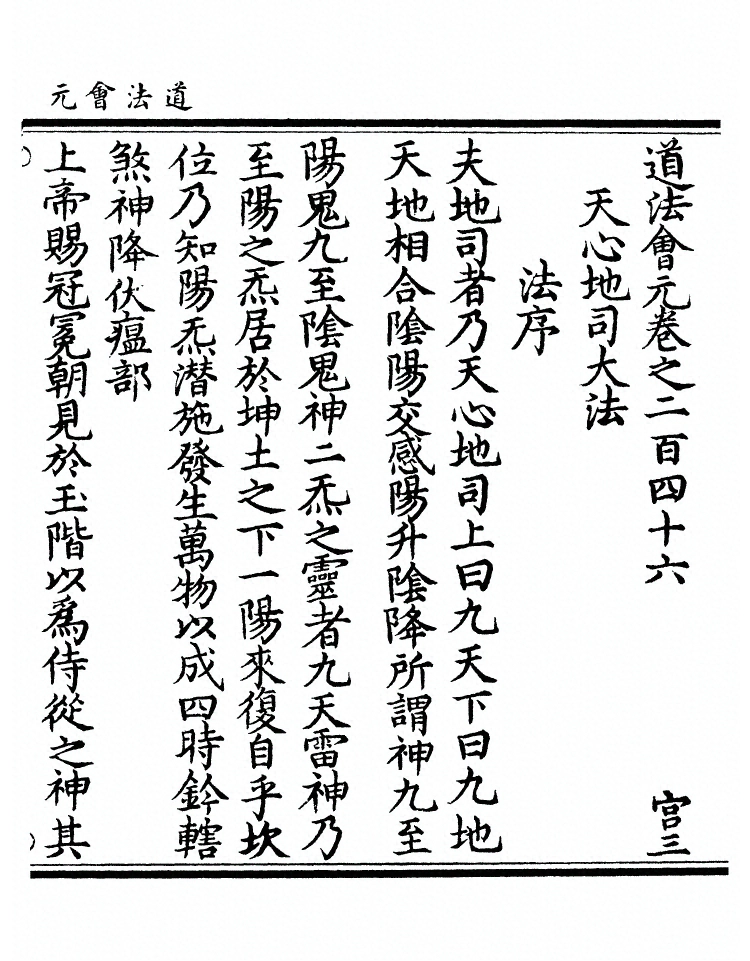 道法會元
道法會元卷之二百四十六 宫三
天心地司大法
法序
夫地司者乃天心地司上曰九天下曰九地
天地相合陰陽交感陽升陰降所謂神九至
陽鬼九至陰鬼神二炁之靈者九天雷神乃
至陽之炁居於坤土之下一陽來復自乎坎
位乃知陽炁潛施發生萬物以成四時鈐轄
煞神降伏瘟部
上帝賜冠冕朝見於玉階以爲侍從之神其